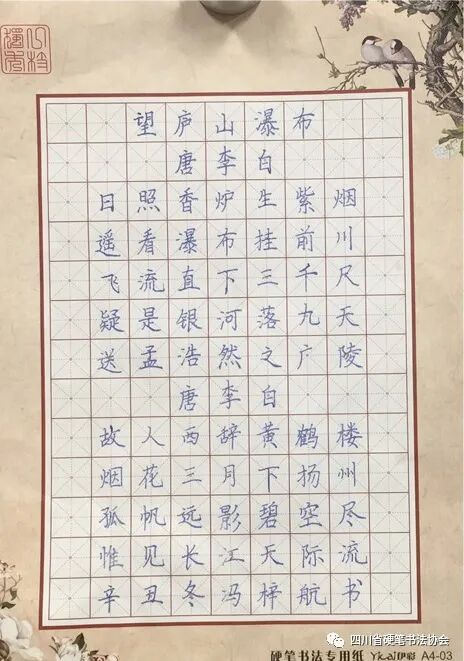 望庐山瀑布
唐李白
日照香炉生紫烟
遥看瀑布挂前川
飞流直下三千尺
疑是银河落九天
送孟浩然之广陵
唐李白
故人西辞黄鹤楼
烟花三月下扬州
孤帆远影碧空尽
惟见长江天际流
辛丑冬冯梓航书
四川省硬笔书法协会
硬笔书法专用纸 Ykai伊彩 A4-03